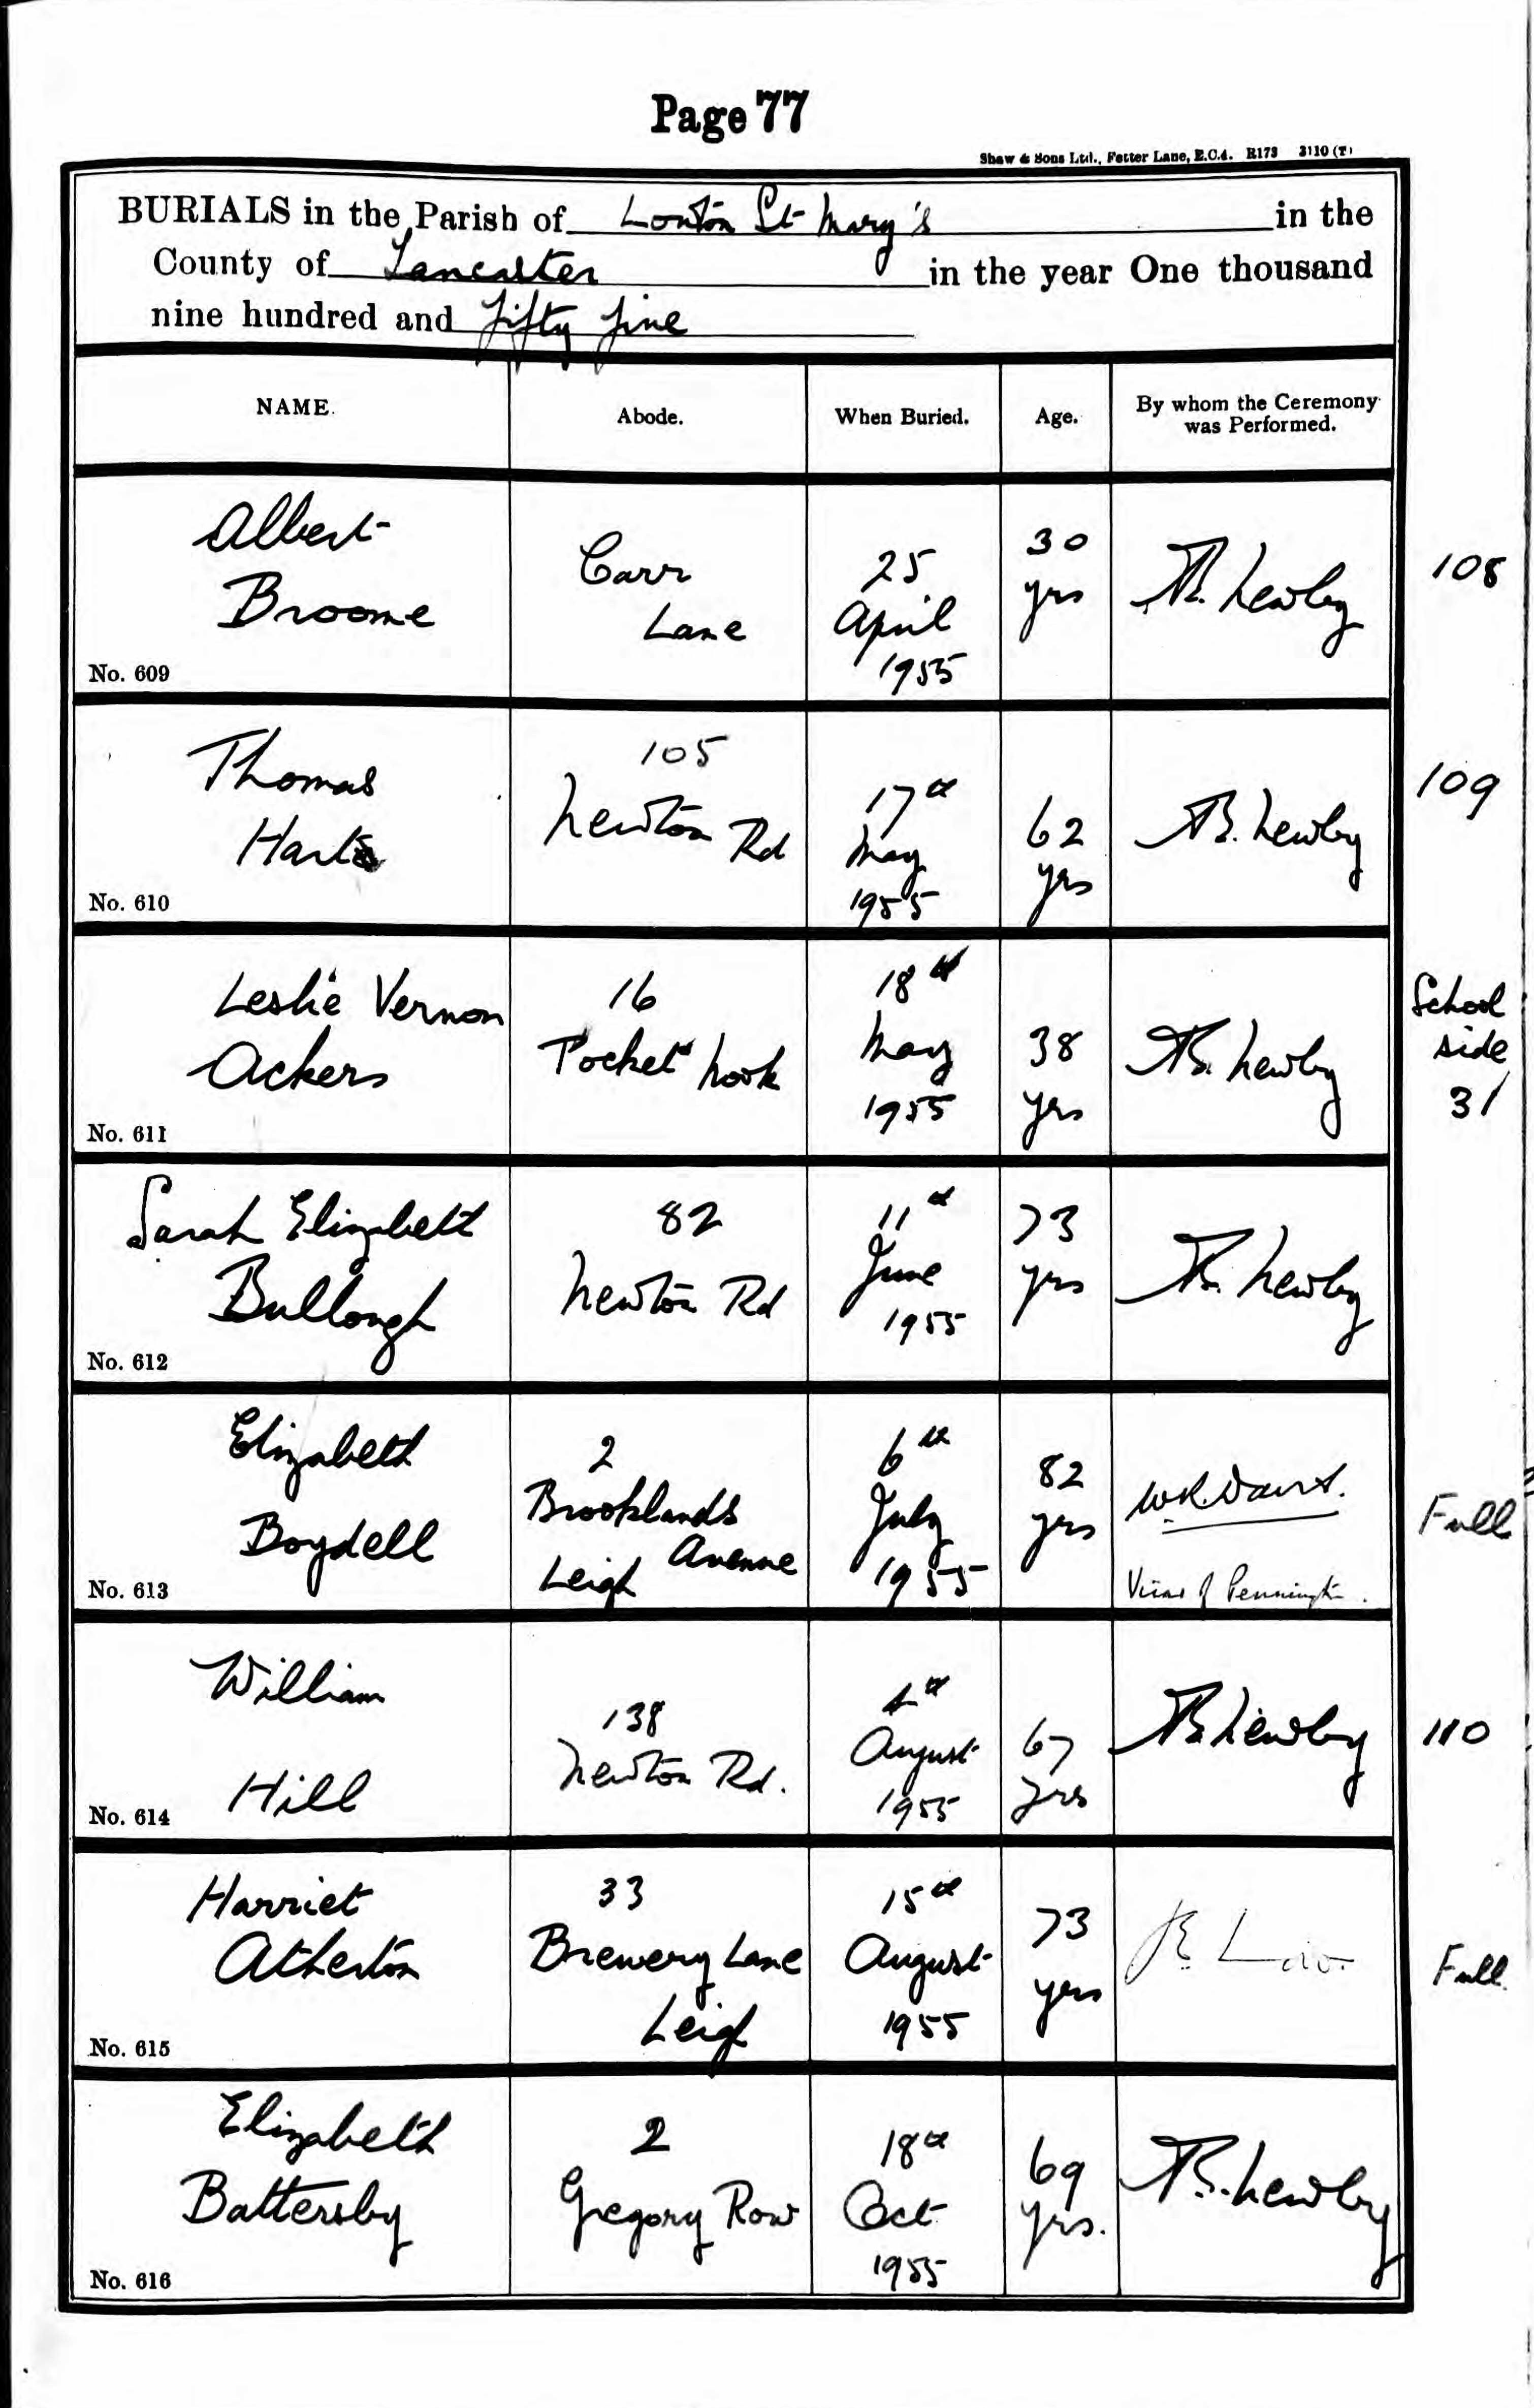 Page 77
Shaw & Sons Ltd., Fetter Lane, E.C.4. R173 3110 (T)
BURIALS in the Parish of Lowton St Mary's in the
County of Lancaster in the year One thousand
nine hundred and fifty five
NAME. Abode. When Buried. Age. By whom the Ceremony was Performed.
Albert
Broome
No. 609
Carr
Lane
25
April
1955
30
yrs
Newby
108
Thomas
No. 610
105
Newton Rd
17th
May
1955
62
yrs
Newby
109
Leslie Vernon
Ackers
No. 611
16
Pocket Nook
18th
May
1955
38
yrs
Newby
School
side
31
Sarah Elizabeth
Bullough
No. 612
82
Newton Rd
11th
June
1955
73
yrs
Newby
Elizabeth
Boydell
No. 613
2
Brooklands
Avenue
Leigh
6th
July
1955
82
yrs
Vicar of Pennington.
Full
William
Hill
No. 614
138
Newton Rd.
4th
August
1955
67
yrs
Newby
110
Harriet
Atherton
No. 615
33
Brewery Lane
Leigh
15th
August
1955
73
yrs
Full
Elizabeth
Battersby
No. 616
2
Gregory Row
18th
Oct
1955
69
yrs.
Newby